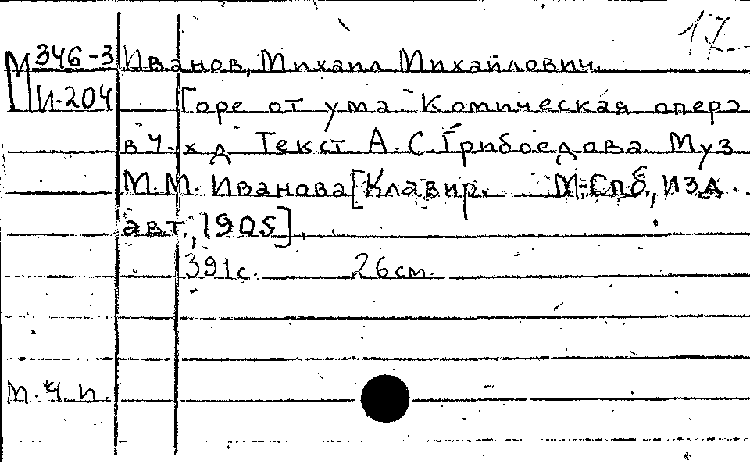 17
М 346-3 Иванов, Михаил Михайлович.
И-204 Горе от ума. Комическая опера
в 4-х д. Текст А.С. Грибоедова. Муз.
М.М. Иванова. [Клавир. М.-Спб., изд.
авт., 1905].
391с. 26см.
м.ч.п.